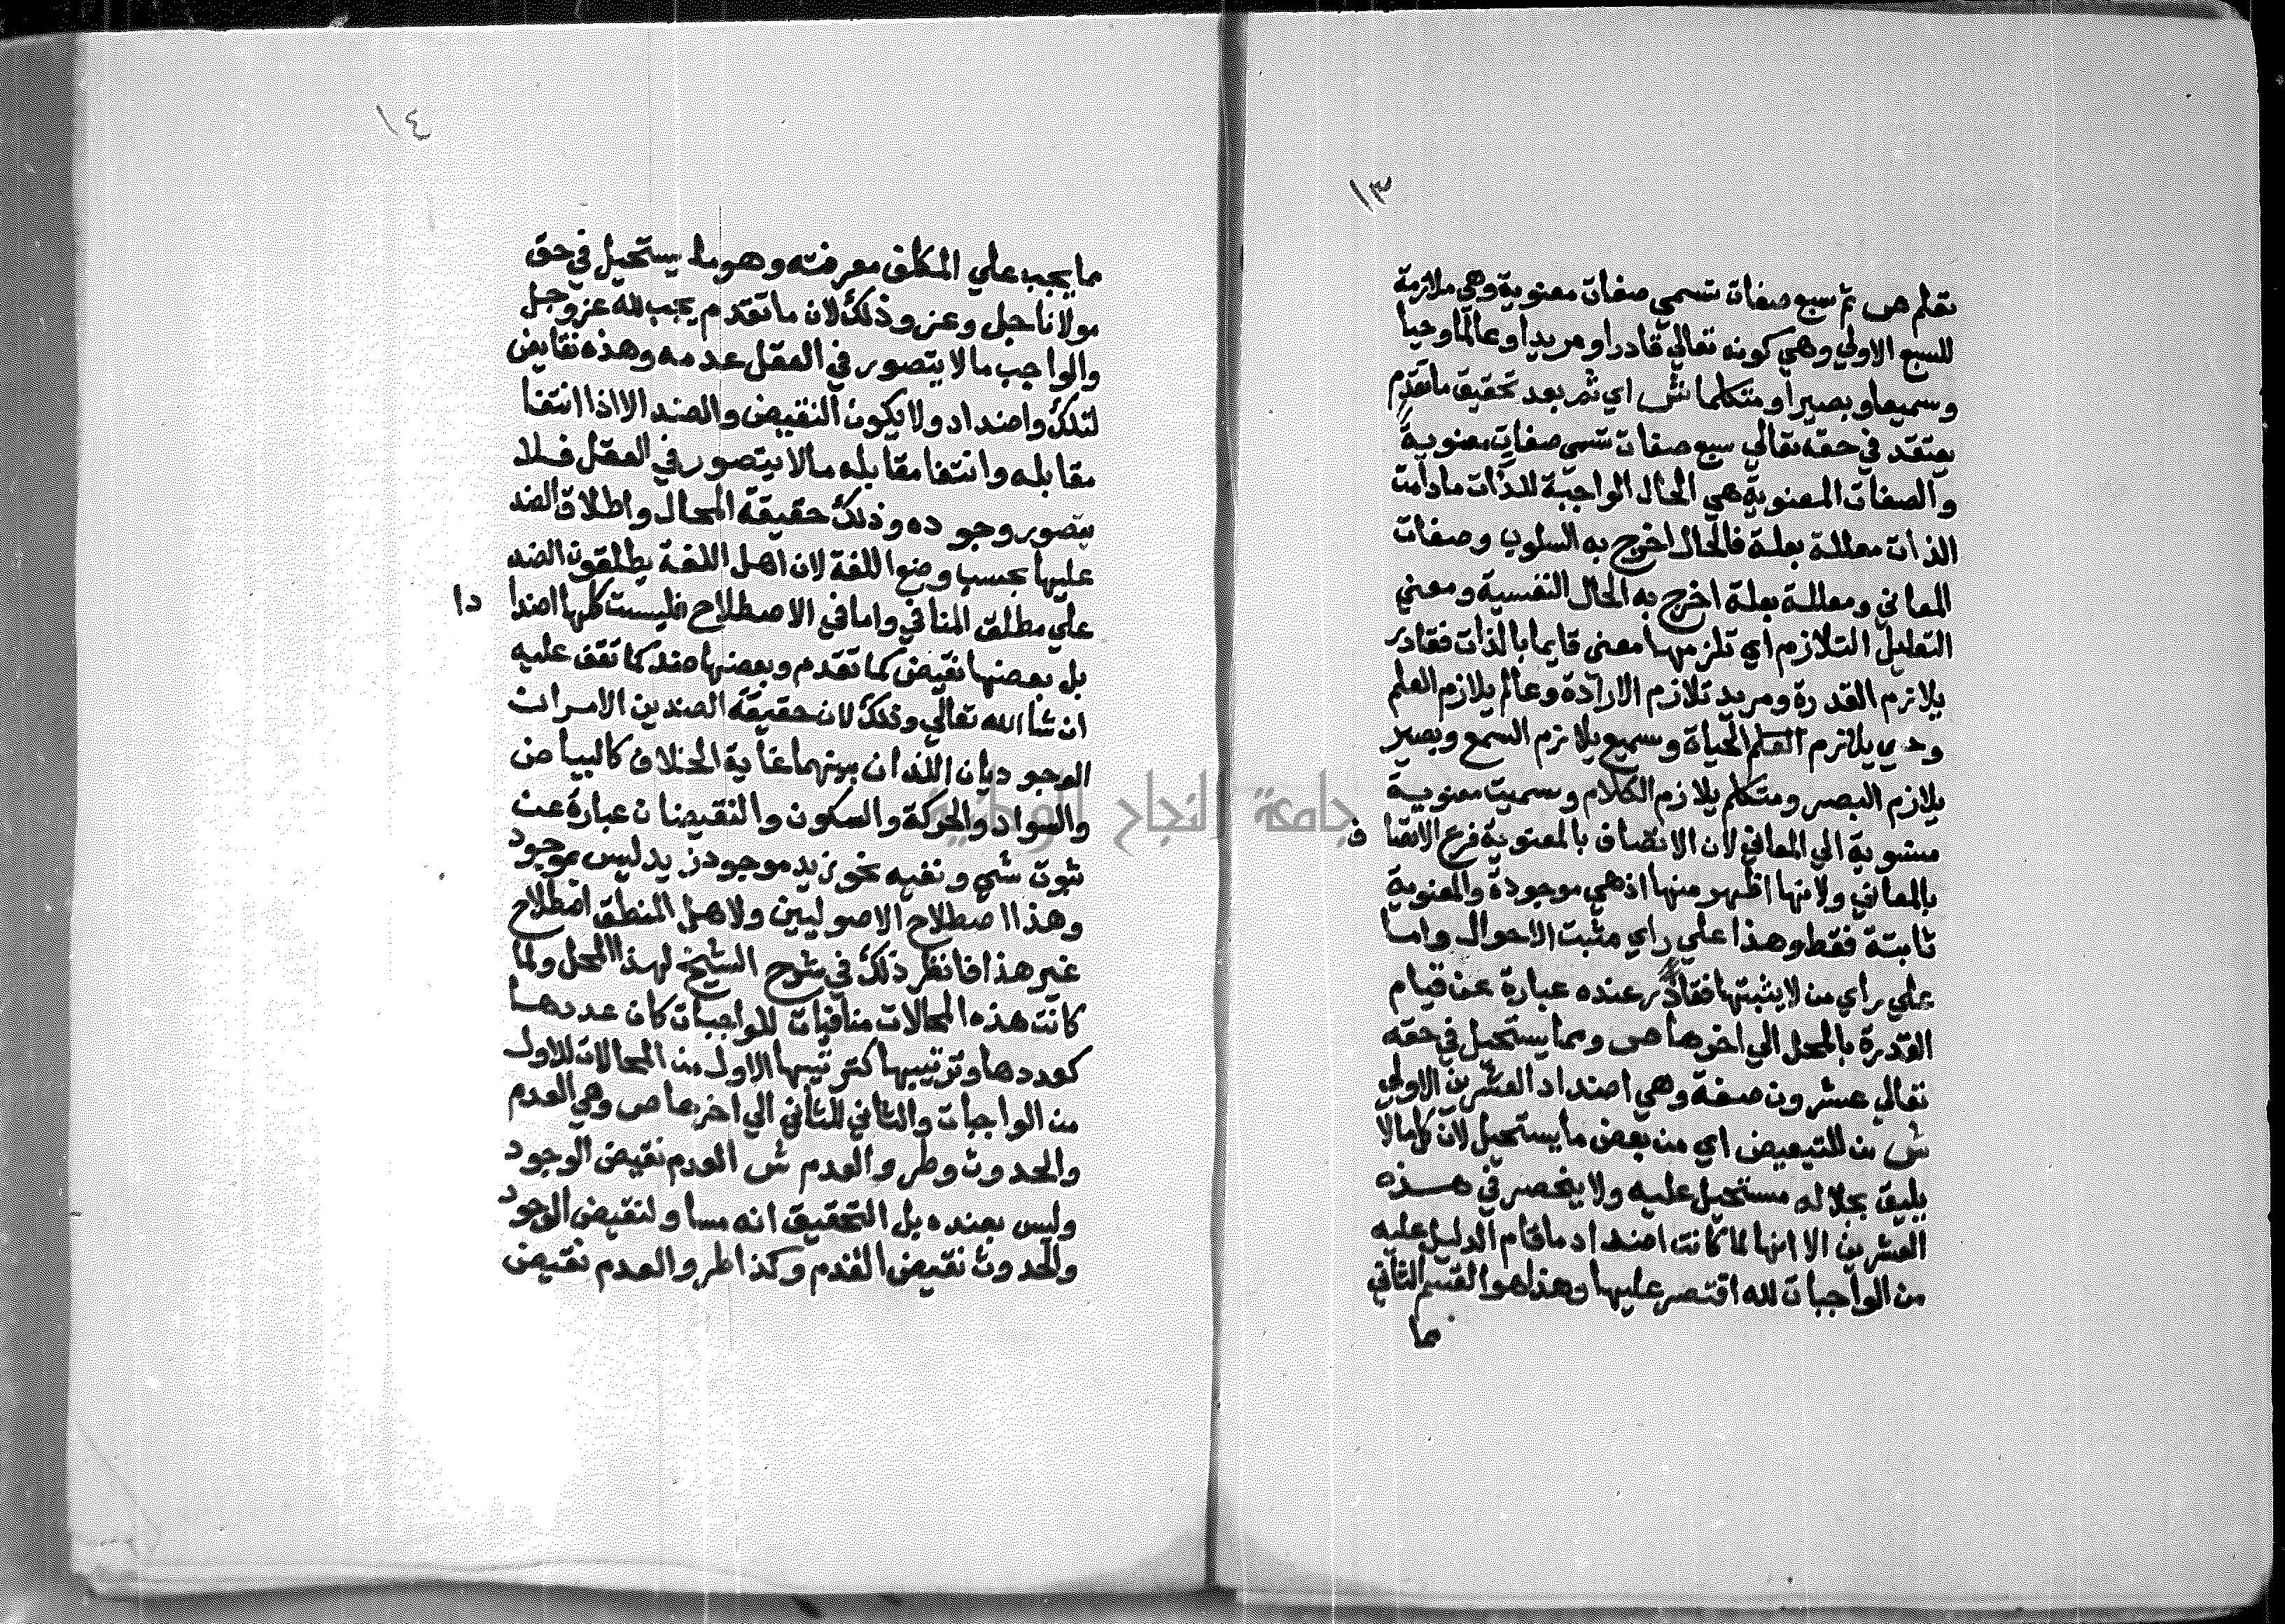 ١٣
تعلم ص ثم سبع صفات تسمي صفات معنوية وهي ملازمة
للسبع الاولي وهي كونه تعالي قادرا ومريدا وعالما وحيا
وسميعا وبصيرا ومتكلما ش اي ثم بعد تحقيق ما تقدم
يعتقد في حقه تعالي سبع صفات تسمى صفات معنوية
والصفات المعنوية هي الحال الواجبة للذات مادامت
الذات معللة بعلة فالحال اخرج به السلوب وصفات
المعاني ومعللة بعلة اخرج به الحال النفسية ومعني
التعليل التلازم اي تلزمها معنى قايما بالذات فقادر
يلازم القدرة ومريد تلازم الارادة وعالم يلازم العلم
وحي يلازم العلم الحياة وسميع يلازم السمع وبصير
يلازم البصر ومتكلم يلازم الكلام وسميت معنوية
منسوبة الي المعاني لان الاتصاف بالمعنوية فرع الاتصا ف
بالمعاني ولانها اظهر منها اذ هي موجودة والمعنوية
ثابتة فقط وهذا علي راي مثبت الاحوال واما
علي راي من لا يثبتها فقادر عنده عبارة عن قيام
القدرة بالمحل الي اخرها ص ومما يستحيل في حقه
تعالي عشرون صفة وهي اضداد العشرين الاولي
ش من للتبعيض اي من بعض ما يستحيل لان كل ما لا
يليق بجلاله مستحيل عليه ولا ينحصر في هذه
العشرين الا انها لما كانت اضداد ما قام الدليل عليه
من الواجبات لله اقتصر عليها وهذا هو القسم الثاني
مما
١٤
ما يجب علي المكلف معرفته وهو ما يستحيل في حق
مولانا جل وعز وذلك لان ما تقدم يجب لله عز وجل
والواجب ما لا يتصور في العقل عدمه وهذه نقايض
لتلك واضداد ولا يكون النقيض والضد الا اذا انتفا
مقابله وانتفا مقابله ما لا يتصور في العقل فلا
يتصور وجوده وذلك حقيقة المحال واطلاق الضد
عليها بحسب وضع اللغة لان اهل اللغة يطلقون الضد
علي مطلق المنافي واما في الاصطلاح فليست كلها اضدا دا
بل بعضها نقيض كما تقدم وبعضها ضد كما تقف عليه
ان شا الله تعالي وذلك لان حقيقة الضدين الامران
الوجوديان اللذان بينهما غاية الخلاف كالبياض
والسواد والحركة والسكون والنقيضان عبارة عن
ثبوت شي ونفيه نحو زيد موجود زيد ليس بموجود
وهذا اصطلاح الاصوليين ولاهل المنطق اصطلاح
غير هذا فانظر ذلك في شرح الشيخ لهذا المحل ولما
كانت هذه المحالات منافيات للواجبات كان عددها
كعددها وترتيبها كترتيبها الاول من المحالات للاول
من الواجبات والثاني للثاني الي اخرها ص وهي العدم
والحدوث وطرو العدم ش العدم نقيض الوجود
وليس بضده بل التحقيق انه مساو لنقيض الوجود
والحدوث نقيض القدم وكذا طرو العدم نقيض
جامعة النجاح الوطنية